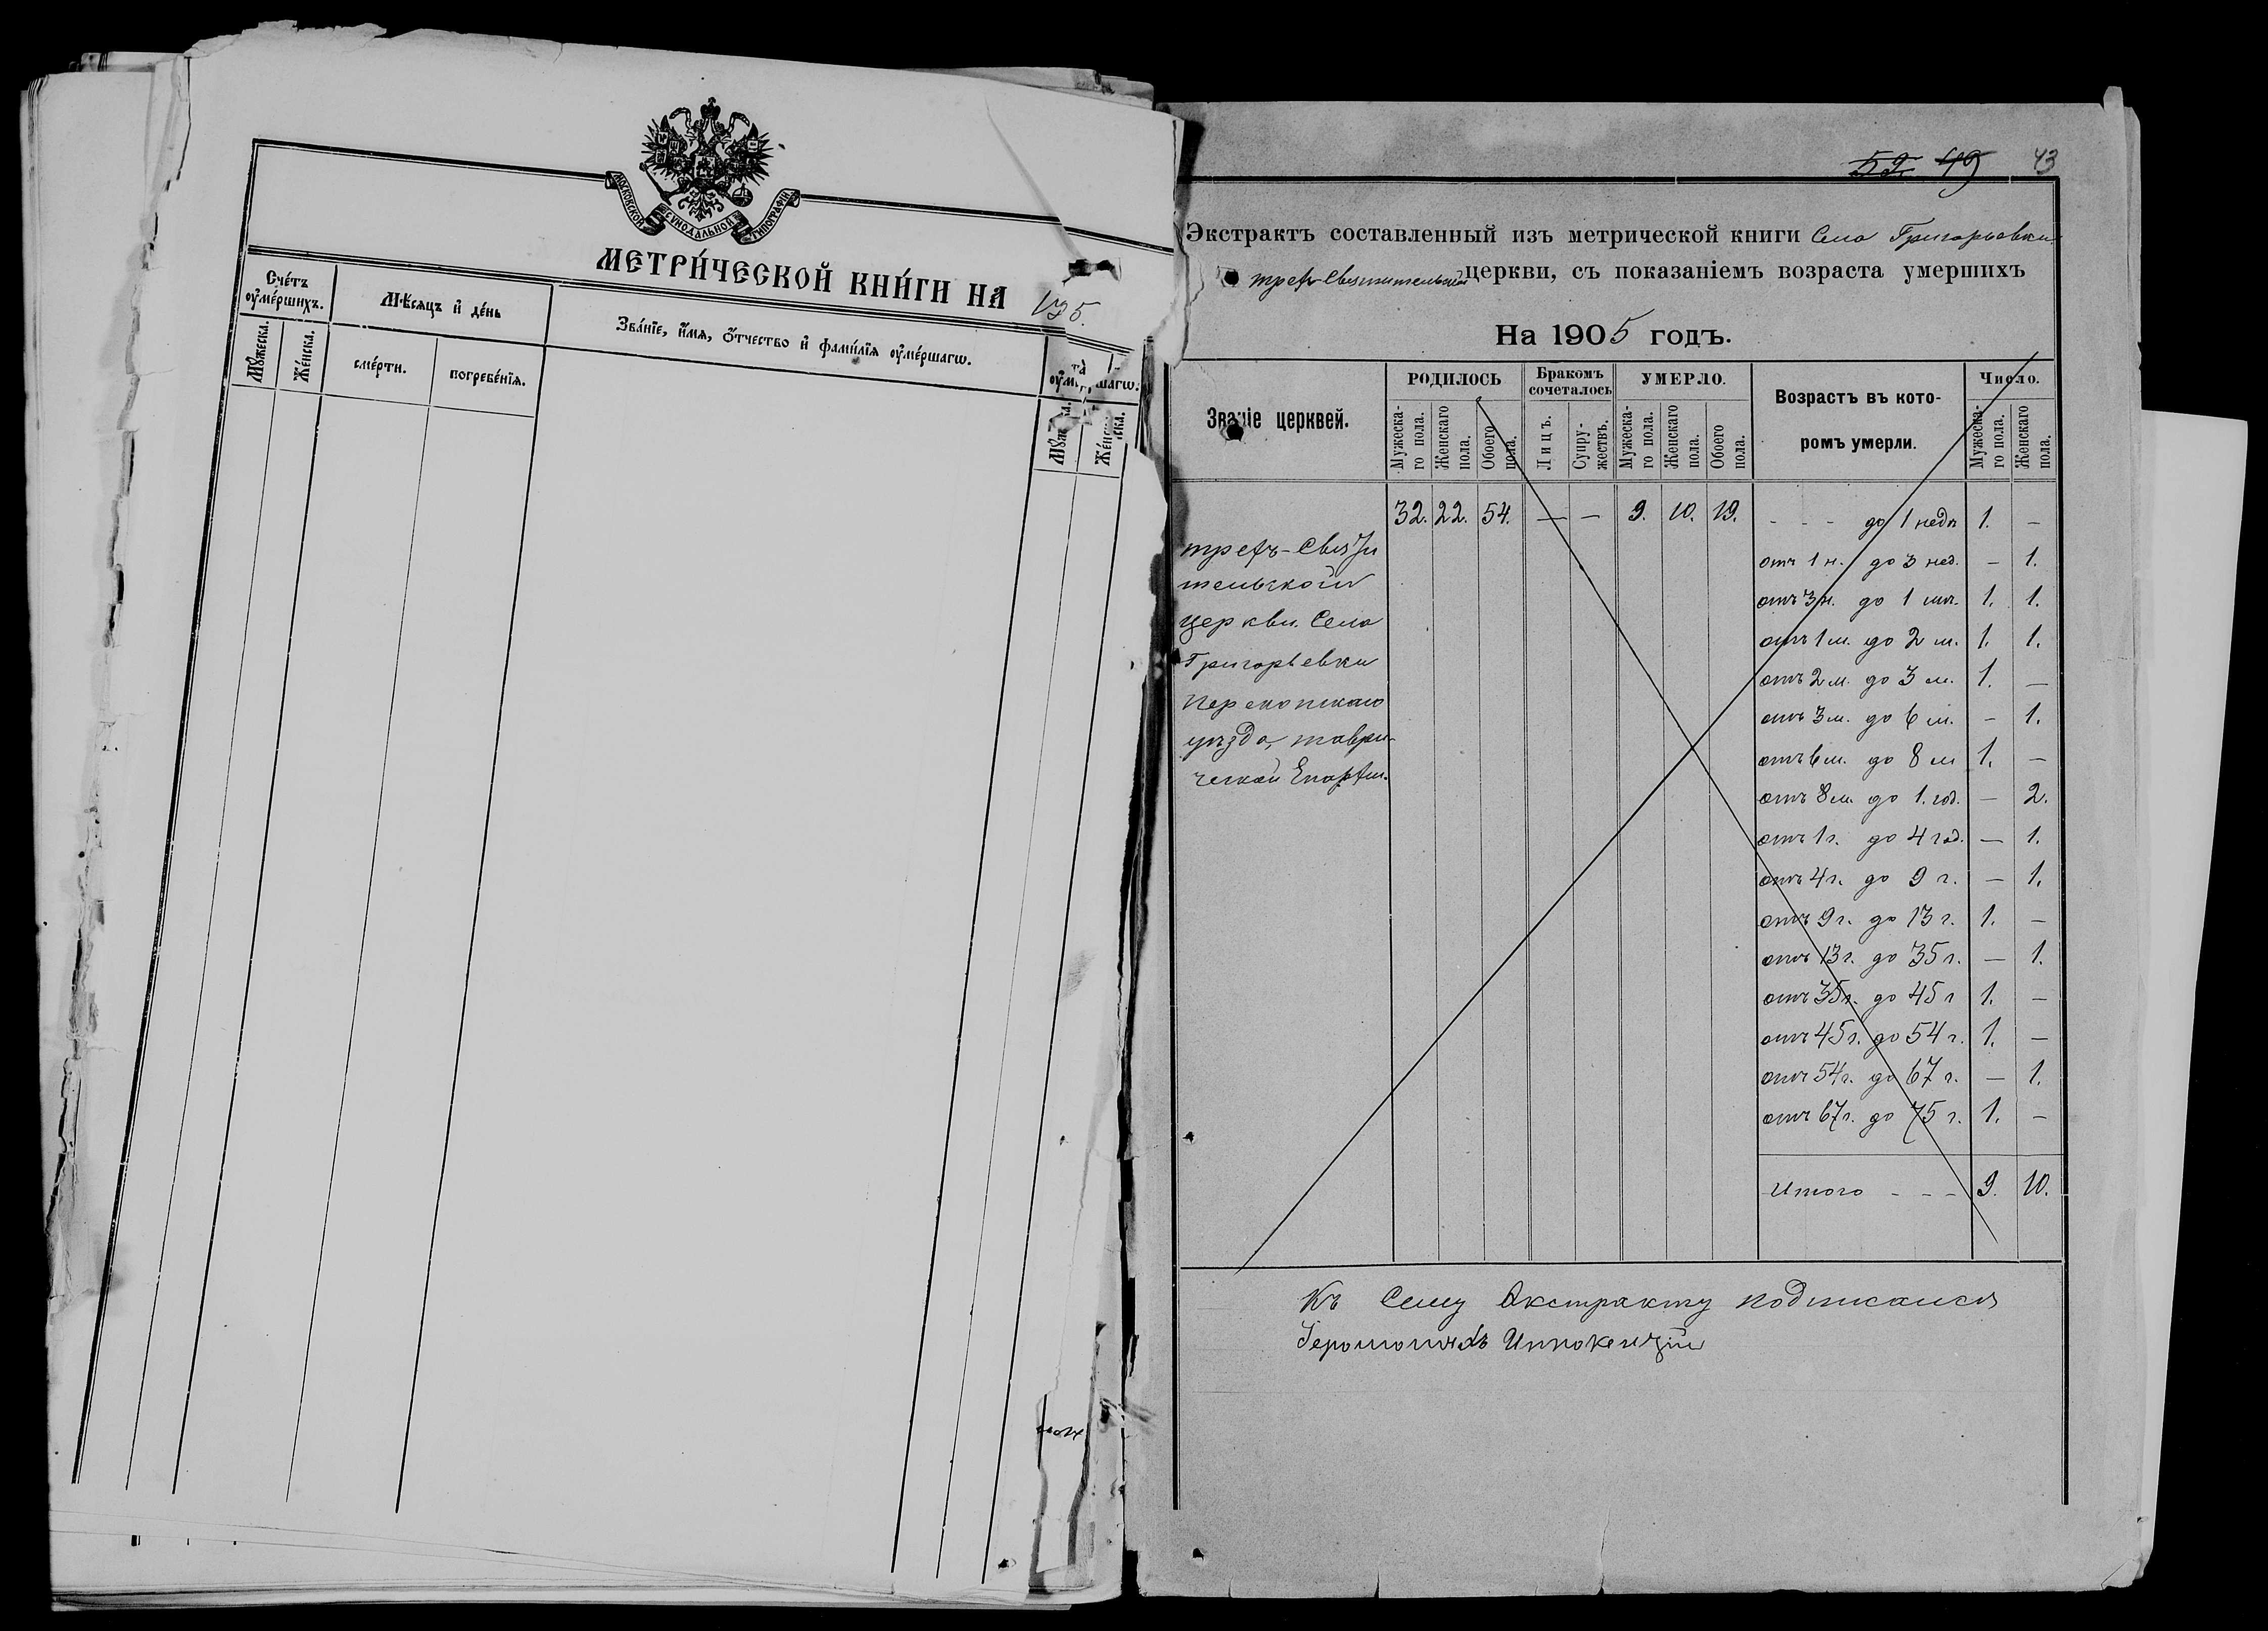 МОСКОВСКОЙ СѴНОДАЛЬНОЙ ТИПОГРАФІИ
МЕТРИ́ЧЕСКОЙ КНИ́ГИ НА
Сче́тъ оу҆ме́ршихъ.
Мѣ́сяцъ и҆ де́нь
Зва́нїе, и҆́мѧ, ѻ҆́тчество и҆ фами́лїѧ оу҆ме́ршагѡ.
Мꙋ́жеска.
Же́нска.
сме́рти.
погребе́нїѧ.
52. 49 43
Экстрактъ составленный изъ метрической книги Села Григорьевки
трехъ-Святительской церкви, съ показаніемъ возраста умершихъ
На 1905 годъ.
Званіе церквей.
РОДИЛОСЬ
Бракомъ сочеталось
УМЕРЛО.
Возрастъ въ кото-
ромъ умерли.
Число.
Мужеска-го пола.
Женскаго пола.
Обоего пола.
Лицъ.
Супру-жествъ.
Мужеска-го пола.
Женскаго пола.
Обоего пола.
Мужеска-го пола.
Женскаго пола.
32. 22. 54. — — 9. 10. 19. - - - до 1 недѣ 1. —
трехъ-Святи
тельской
церкви Села
Григорьевки
Перекопскаго
уѣзда, таври-
ческой Епархіи.
отъ 1 н. до 3 нед. — 1.
отъ 3 н. до 1 мѣ. 1. 1.
отъ 1 м. до 2 м. 1. 1.
отъ 2 м. до 3 м. 1. —
отъ 3 м. до 6 м. — 1.
отъ 6 м. до 8 м 1. —
отъ 8 м. до 1. год. — 2.
отъ 1 г. до 4 год. — 1.
отъ 4 г. до 9 г. — 1.
отъ 9 г. до 13 г. 1. —
отъ 13 г. до 35 г. — 1.
отъ 35 г. до 45 г 1. —
отъ 45 г. до 54 г. 1. —
отъ 54 г. до 67 г. — 1.
отъ 67 г. до 75 г. 1. —
Итого - - - 9. 10.
Къ Сему Экстракту подписался
Іеромонахъ Иннокентій